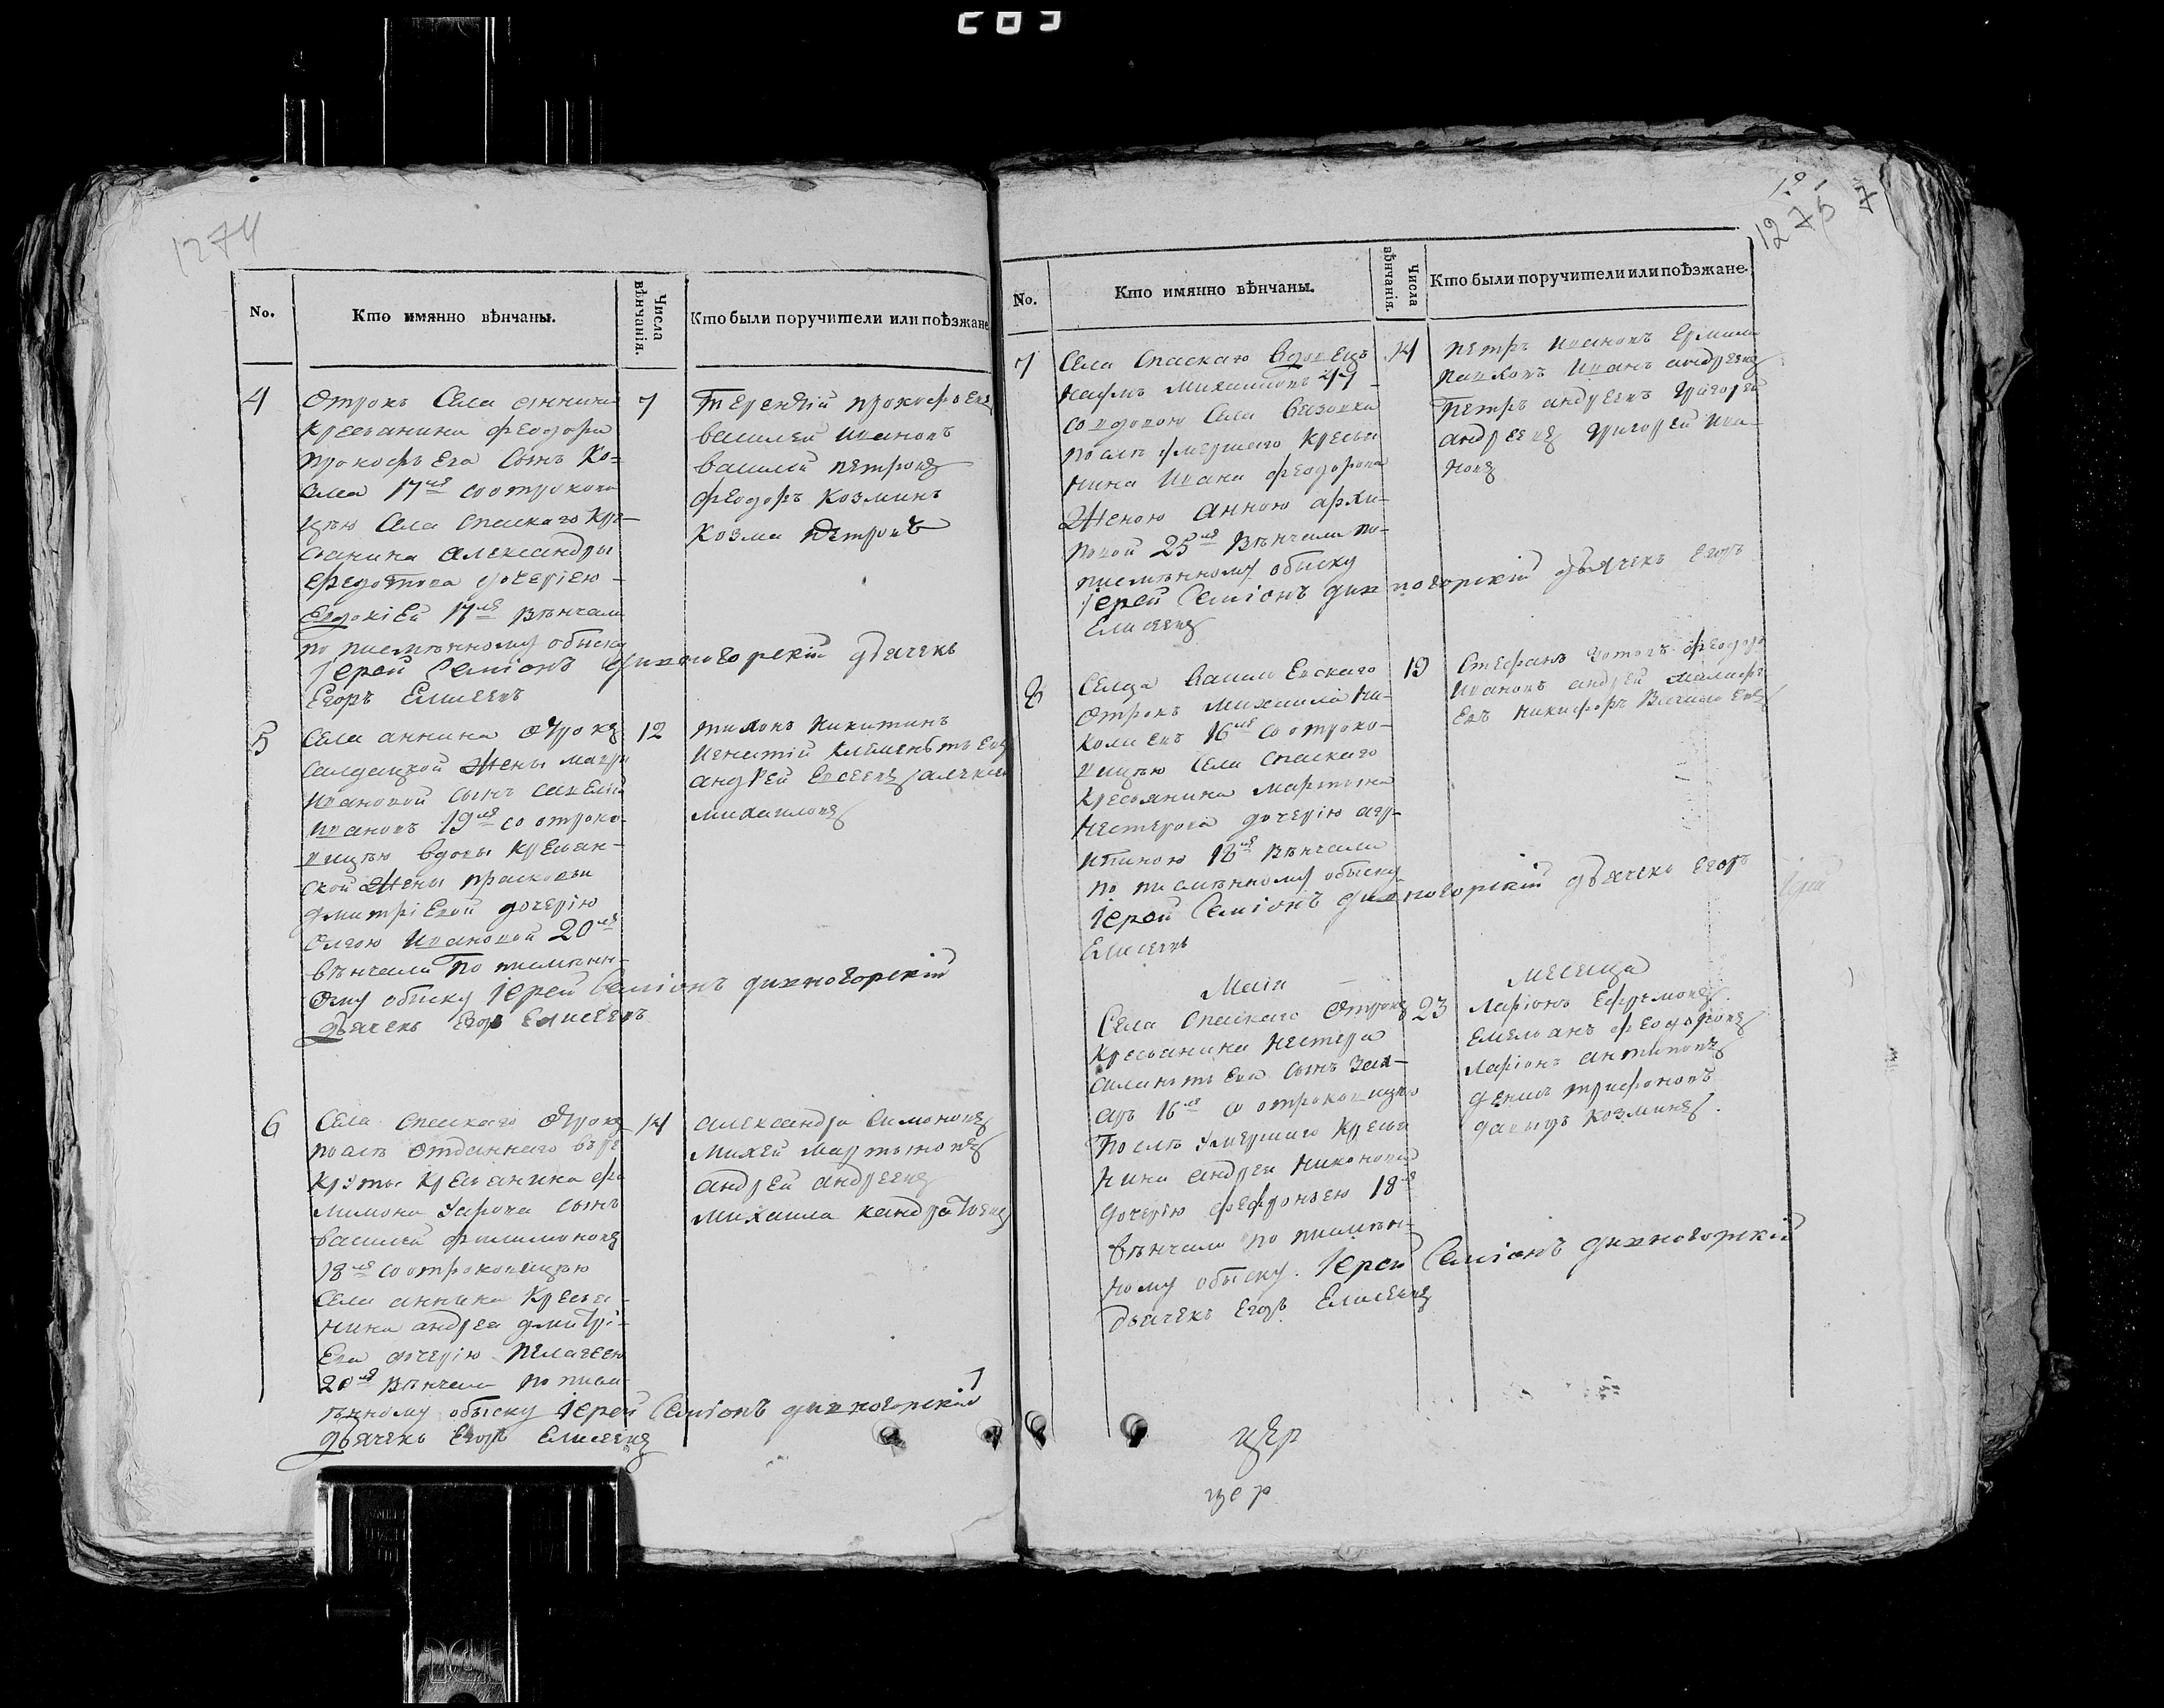 283
1274
No.
Кто имянно вѣнчаны.
Числа вѣнчанія.
Кто были поручители или поѣзжане
4
Отрокъ Села аннина
Кресьянина феодора
Прокофьева Сынъ Ко-
17 лѣ со отрокови
цѣю Села Спаскаго Кре-
сьянина александры
федотова дочерію
Евдокіей 17 лѣ Вѣнчали
по писмѣнному обыску
Іерей Семіонъ дивногорскій дьячекъ
Егоръ Елисеевъ
7
Терентій прокофьевъ
василей Ивановъ
василей петровъ
феодоръ козминъ
Козма петровъ
5
Села аннина отрокъ
салдацкой Жены
Ивановой сынъ савелій
Ивановъ 19 лѣ со отроко-
вицѣю вдовы кресьян-
ской Жены прасковьи
дмитріевой дочерію
Олгою Ивановой 20 лѣ
вѣнчали По писмѣнн-
ому обыску Іерей Семіонъ дивногорскій
дьячекъ Егоръ Елисеевъ
12
тихонъ никитинъ
Игнатій Клименьтьевъ
андрей Евсеевъ
михаиловъ
6
Села Спаскаго Отрокъ
послѣ отданнаго въ ре
круты Кресьянина фи
лимона сынъ
василей филимоновъ
18 лѣ со отроковицѣю
Села аннина Кресья-
нина андрея дмитрі-
ева дочерію пелагеею
20 лѣ Вѣнчали по писм
ѣнному обыску Іерей Семіонъ дивногорскій
дьячекъ Егоръ Елисеевъ
14
александра Симоновъ
Михей мартыновъ
андрей андреевъ
михаила кандратьевъ
1275
7
No.
Кто имянно вѣнчаны.
Числа вѣнчанія.
Кто были поручители или поѣзжане.
7
Села Спаскаго Вдовецъ
михаиловъ 47
со вдовою Села
послѣ умершаго Кресья
нина Ивана феодорова
Женою анною архи-
повой 25 лѣ Вѣнчали по-
писмѣнному обыску
Іерей Семіонъ дивногорскій дьячекъ Егоръ
Елисеевъ
14
Петръ Ивановъ
Иванъ андреевъ
Петръ андреевъ григорей
андреевъ григорей Ива-
новъ
8
Селца василевскаго
Отрокъ михаила ни-
колаевъ 16 лѣ со отроко-
вицѣю Села Спаскаго
Кресьянина мартына
Нестерова дочерію
18 лѣ Вѣнчали
по писмѣнному обыску
Іерей Семіонъ дивногорскій дьячекъ Егоръ
Елисеевъ
19
Стефанъ феодоръ
Ивановъ андрей
никифоръ
Маія
месеца
Села Спаскаго Отрокъ
Кресьянина Нестера
сынъ Зах-
аръ 16 лѣ со отроковицѣю
Послѣ умершаго Кресья
нина андрея никонова
дочерію фефроньею 18 лѣ
вѣнчали по писмѣн-
ному обыску. Іерей Семіонъ дивногорскій
дьячекъ Егоръ Елисеевъ
23
Ларіонъ Ефремовъ
Емельянъ феодоровъ
Ларіонъ антиповъ
денис трифоновъ
давыдъ козминъ.
цер
цер